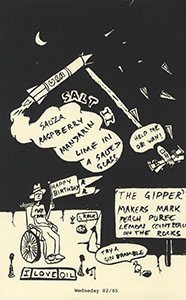 USA
SALT II
HELP ME
OBI WAN!
SAUZA
RASPBERRY
MANDARIN
LIME IN
A SALTED
GLASS
HAPPY
BIRTHDAY
THE GIPPER:
MAKERS MARK
PEACH PUREE
LEMON COINTREAU
ON THE ROCKS
TRY A
GIN BRAMBLE
I LOVE OIL
Wednesday 02/05